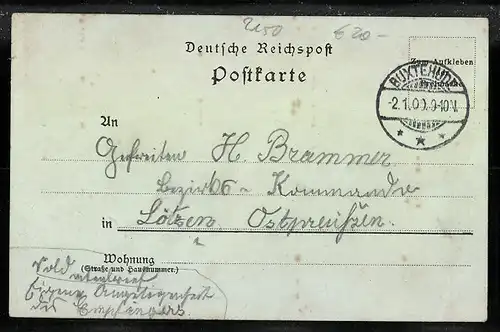 2150 €20-
Deutsche Reichspost
Postkarte
Zum Aufkleben
BUXTEHUDE
-2.1.00.9-10V.
An
Gefreiten H. Brammer
Bezirks-Kommando
in Lötzen Ostpreußen.
Wohnung
(Straße und Hausnummer.)
Soldatenbrief
Eigene Angelegenheit
des Empfängers